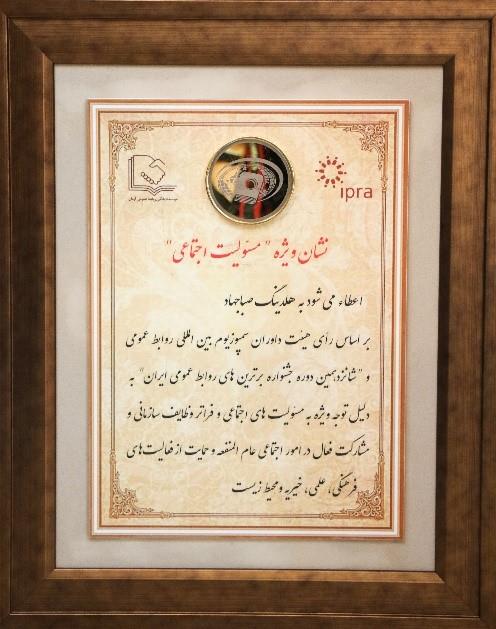 ipra
نشان ویژه "مسئولیت اجتماعی"
اعطاء می شود به هلدینگ صباجهاد
بر اساس رأی هیئت داوران سمپوزیوم بین المللی روابط عمومی
و "شانزدهمین دوره جشنواره برترین های روابط عمومی ایران" به
دلیل توجه ویژه به مسئولیت های اجتماعی و فراتر وظایف سازمانی و
مشارکت فعال در امور اجتماعی عام المنفعه و حمایت از فعالیت های
فرهنگی، علمی، خیریه و محیط زیست